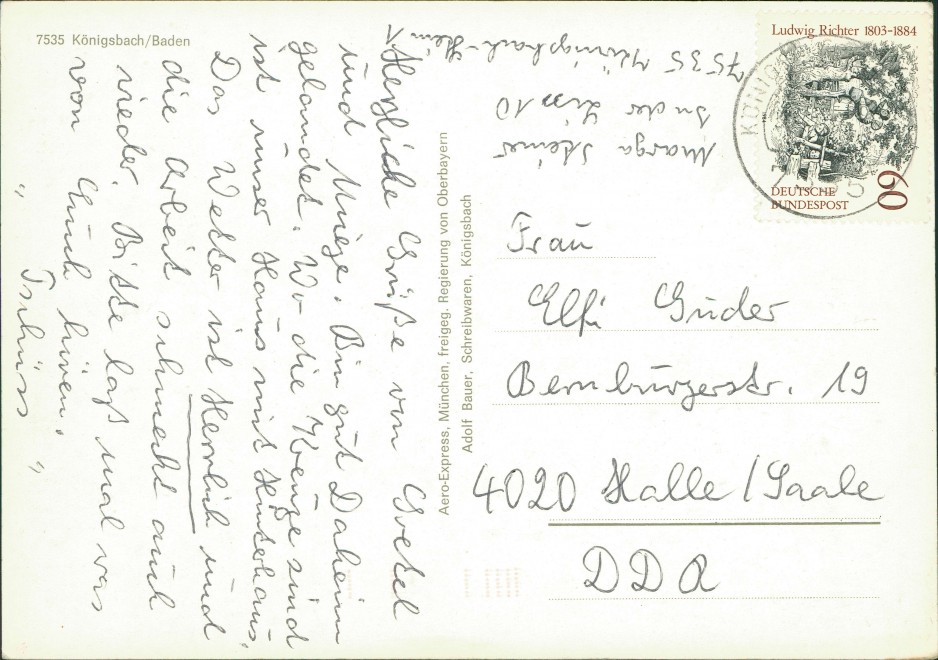 7535 Königsbach/Baden
Herzliche Grüße von Gretel
und Mieze. Bin gut Daheim
gelandet. Wo die Kreuze sind
ist unser Haus mit Hinterhaus.
Das Wetter ist Herrlich und
die Arbeit schmeckt auch
wieder. Bitte laß mal was
von Euch hören.
" Tschüss "
Aero-Express, München, freigeg. Regierung von Oberbayern
Adolf Bauer, Schreibwaren, Königsbach
Marga Steiner
In der 10
7535 Königsbach-Stein 1
Ludwig Richter 1803-1884
DEUTSCHE
BUNDESPOST
60
Frau
Elfi Guder
Bernburgerstr. 19
4020 Halle/Saale
DDR